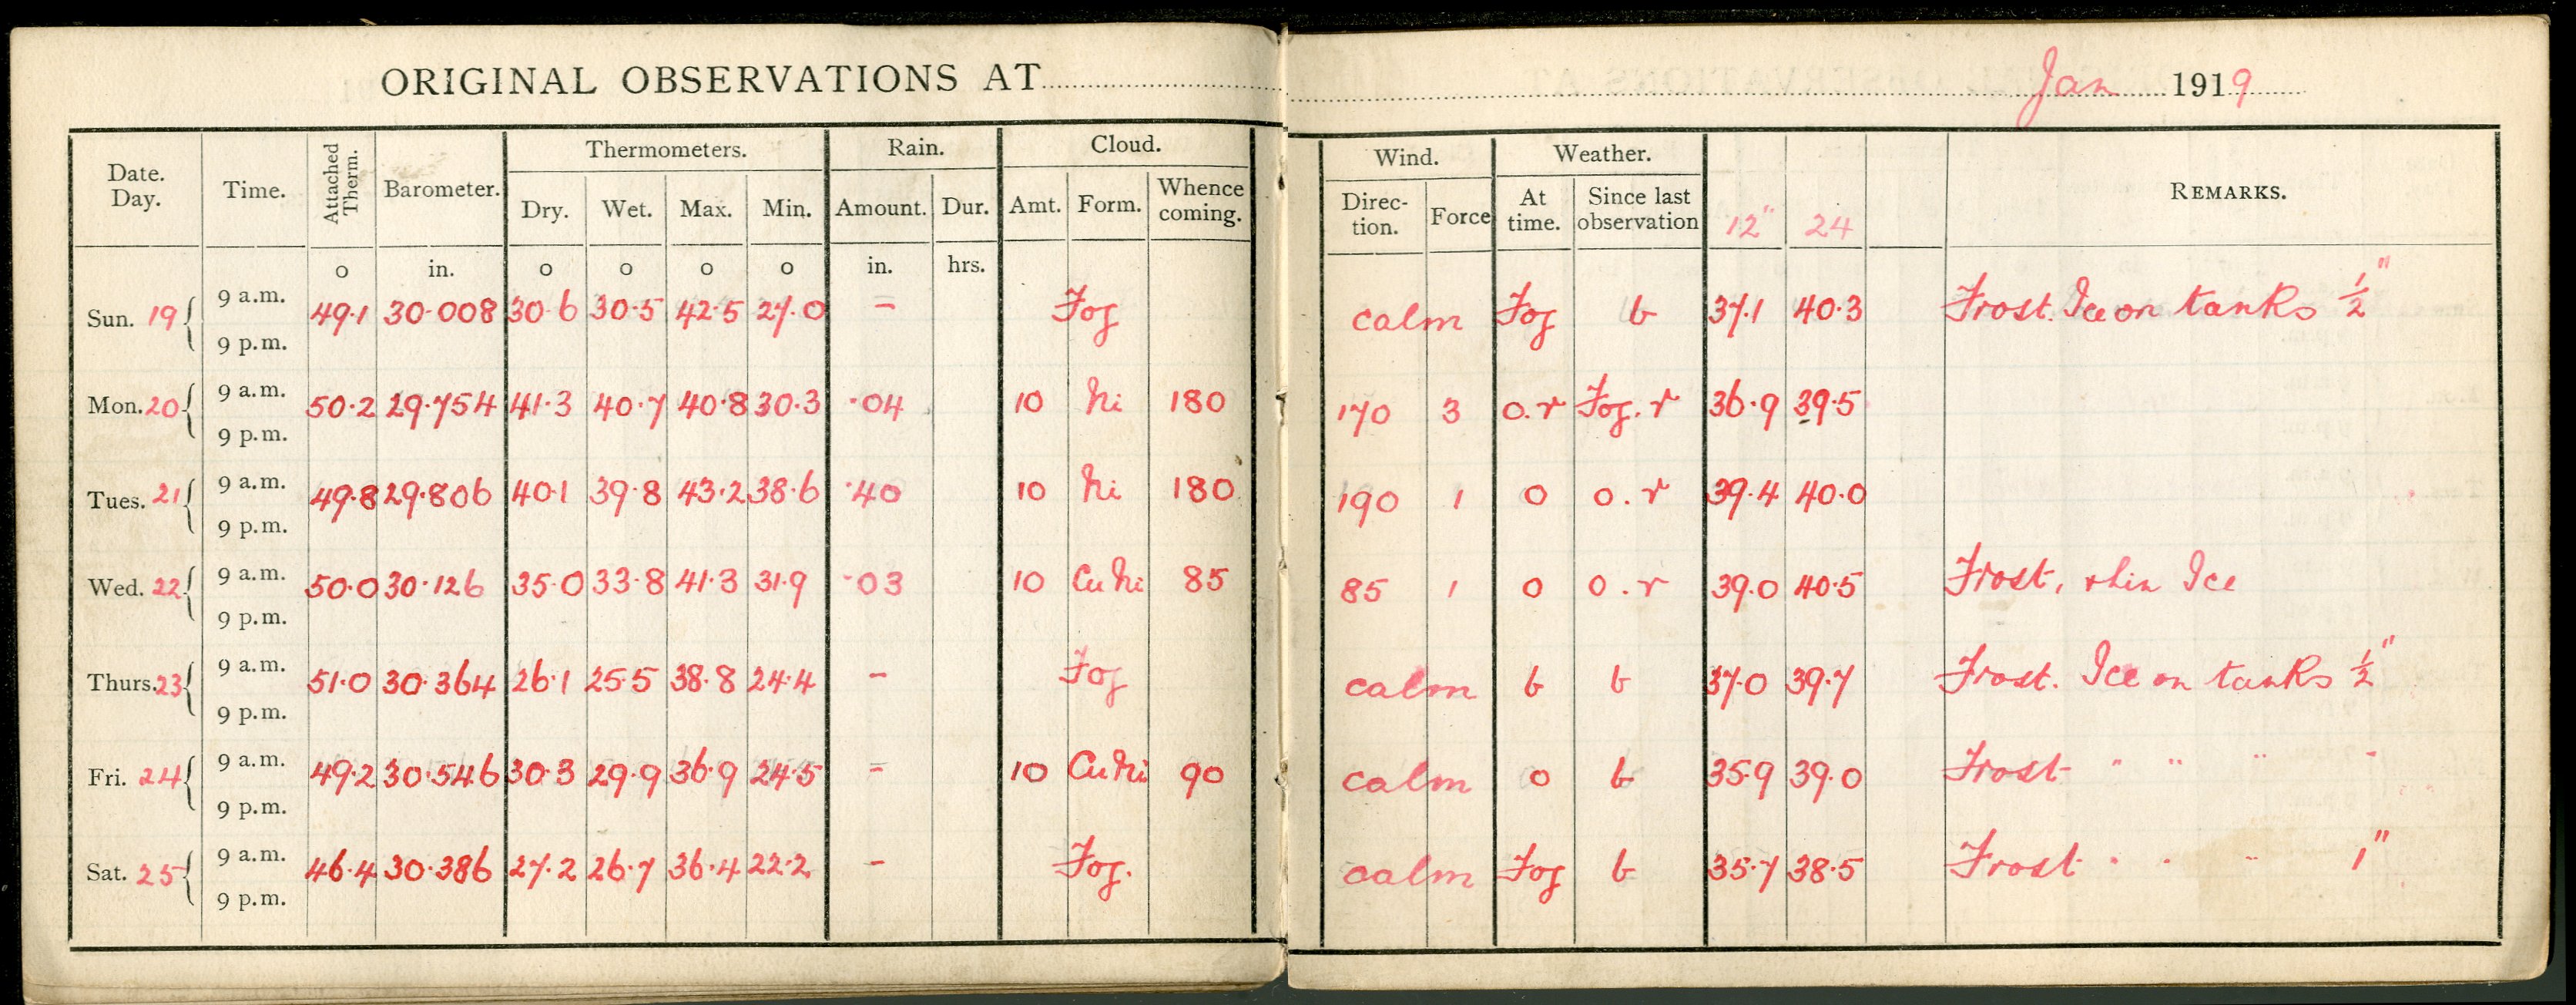 ORIGINAL OBSERVATIONS AT Jan 1919
Date. Day. Time. Attached Therm. Barometer. Thermometers. Rain. Cloud. Wind. Weather. REMARKS.
Dry. Wet. Max. Min. Amount. Dur. Amt. Form. Whence coming. Direc-tion. Force At time. Since last observation 12" 24
o in. o o o o in. hrs.
Sun. 19 9 a.m. 49.1 30.008 30.6 30.5 42.5 27.0 - Fog calm Fog b 37.1 40.3 Frost. Ice on tanks 1/2"
9 p.m.
Mon. 20 9 a.m. 50.2 29.754 41.3 40.7 40.8 30.3 .04 10 Ni 180 170 3 o.r Fog. r 36.9 39.5
9 p.m.
Tues. 21 9 a.m. 49.8 29.806 40.1 39.8 43.2 38.6 .40 10 Ni 180 190 1 o o.r 39.4 40.0
9 p.m.
Wed. 22 9 a.m. 50.0 30.126 35.0 33.8 41.3 31.9 .03 10 CuNi 85 85 1 o o.r 39.0 40.5 Frost, thin Ice
9 p.m.
Thurs. 23 9 a.m. 51.0 30.364 26.1 25.5 38.8 24.4 - Fog calm b b 37.0 39.7 Frost. Ice on tanks 1/2"
9 p.m.
Fri. 24 9 a.m. 49.2 30.546 30.3 29.9 36.9 24.5 - 10 CuNi 90 calm o b 35.9 39.0 Frost " " " "
9 p.m.
Sat. 25 9 a.m. 46.4 30.386 27.2 26.7 36.4 22.2 - Fog. calm Fog b 35.7 38.5 Frost " " " 1"
9 p.m.